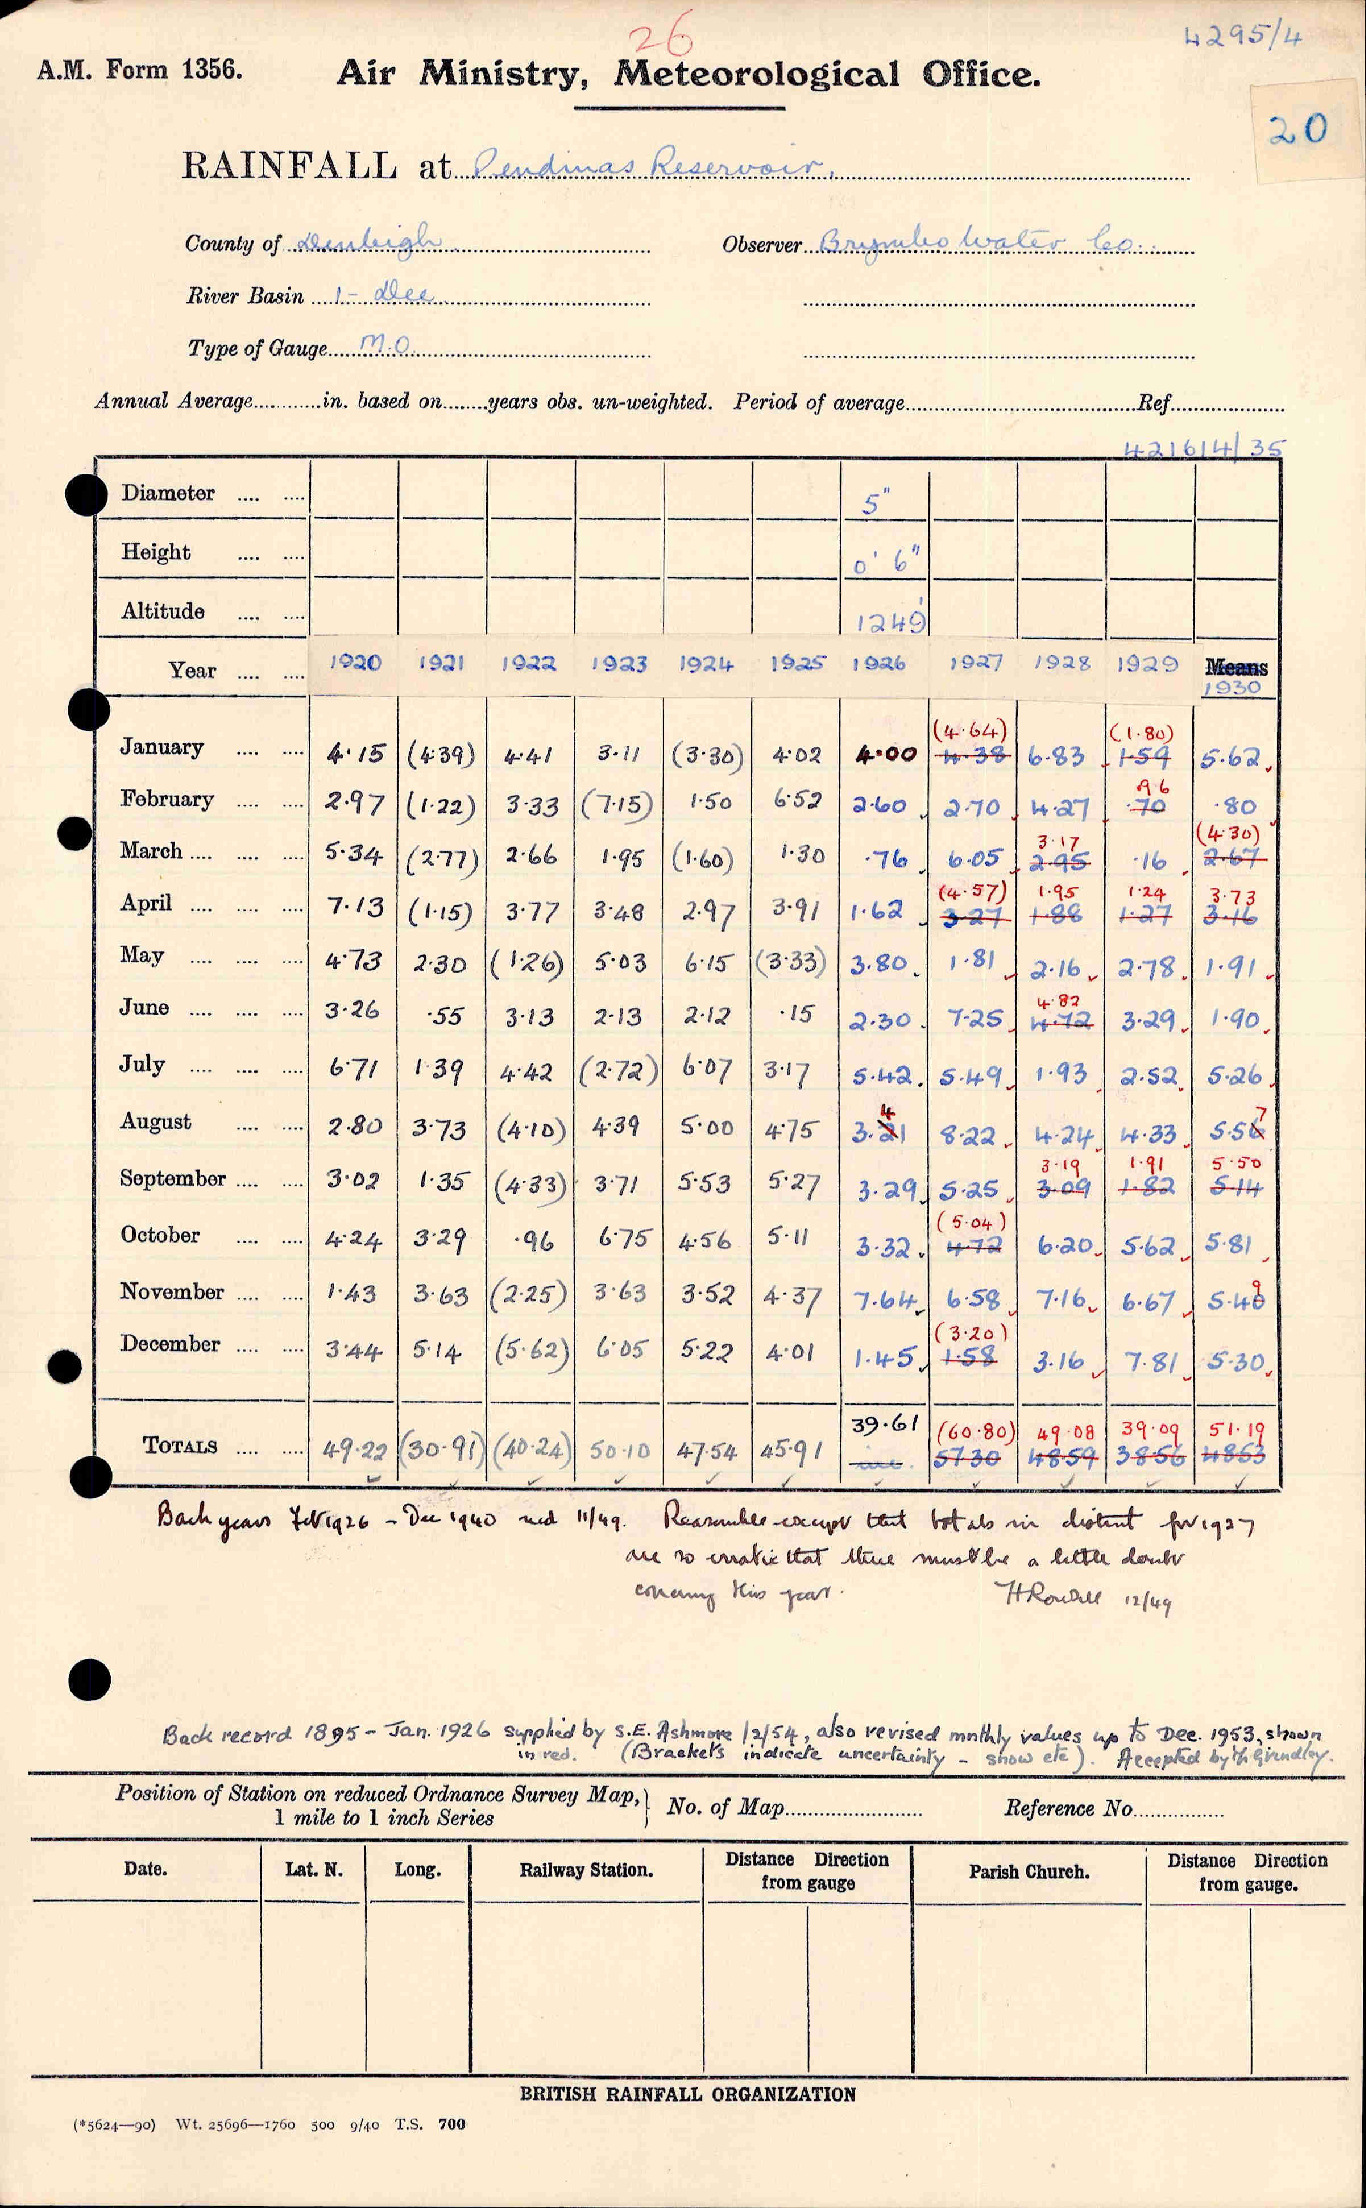 26
4295/4
A.M. Form 1356. Air Ministry, Meteorological Office.
20
RAINFALL at Pendinas Reservoir.
County of Denbigh Observer Brymbo Water Co.
River Basin 1 - Dee
Type of Gauge M.O.
Annual Average in. based on years obs. un-weighted. Period of average Ref
421614/35
Diameter 5"
Height 0' 6"
Altitude 1249'
Year 1920 1921 1922 1923 1924 1925 1926 1927 1928 1929 Means 1930
(4.64) (1.80)
January 4.15 (4.39) 4.41 3.11 (3.30) 4.02 4.00 4.38 6.83 1.59 5.62
.96
February 2.97 (1.22) 3.33 (7.15) 1.50 6.52 2.60 2.70 4.27 .70 .80
3.17 (4.30)
March 5.34 (2.77) 2.66 1.95 (1.60) 1.30 .76 6.05 2.95 .16 2.67
(4.57) 1.95 1.24 3.73
April 7.13 (1.15) 3.77 3.48 2.97 3.91 1.62 3.27 1.88 1.27 3.16
May 4.73 2.30 (1.26) 5.03 6.15 (3.33) 3.80 1.81 2.16 2.78 1.91
4.82
June 3.26 .55 3.13 2.13 2.12 .15 2.30 7.25 4.72 3.29 1.90
July 6.71 1.39 4.42 (2.72) 6.07 3.17 5.42 5.49 1.93 2.52 5.26
4 7
August 2.80 3.73 (4.10) 4.39 5.00 4.75 3.21 8.22 4.24 4.33 5.56
3.19 1.91 5.50
September 3.02 1.35 (4.33) 3.71 5.53 5.27 3.29 5.25 3.09 1.82 5.14
(5.04)
October 4.24 3.29 .96 6.75 4.56 5.11 3.32 4.72 6.20 5.62 5.81
9
November 1.43 3.63 (2.25) 3.63 3.52 4.37 7.64 6.58 7.16 6.67 5.40
(3.20)
December 3.44 5.14 (5.62) 6.05 5.22 4.01 1.45 1.58 3.16 7.81 5.30
39.61 (60.80) 49.08 39.09 51.19
TOTALS 49.22 (30.91) (40.24) 50.10 47.54 45.91 57.30 48.59 38.56 48.53
Back years Feb 1926 - Dec 1940 recd 11/49. Reasonable except that totals in district for 1927
are so erratic that there must be a little doubt
concerning this year. 12/49
Back record 1895 - Jan. 1926 supplied by S.E. Ashmore 12/54, also revised mnthly values up to Dec. 1953, shown
in red. (Brackets indicate uncertainty - snow etc). Accepted by Grindley.
Position of Station on reduced Ordnance Survey Map, No. of Map Reference No
1 mile to 1 inch Series
Date. Lat. N. Long. Railway Station. Distance Direction from gauge Parish Church. Distance Direction from gauge.
BRITISH RAINFALL ORGANIZATION
(*5624—90) Wt. 25696—1760 500 9/40 T.S. 700